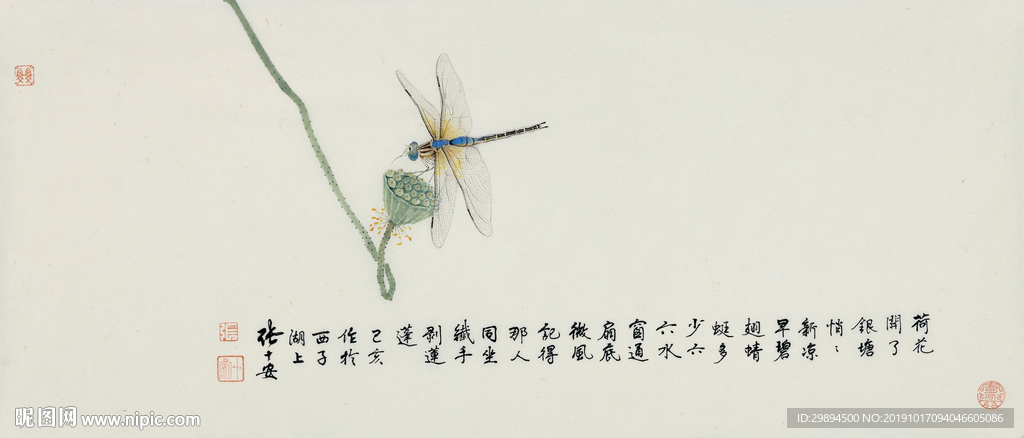 荷花
開了
銀塘
悄〻
新凉
早碧
翅蜻
蜓多
少六
六水
窗通
扇底
微風
記得
那人
同坐
纖手
剥蓮
蓬
己亥
作於
西子
湖上
张十安
昵图网 www.nipic.com
ID:29894500 NO:20191017094046605086